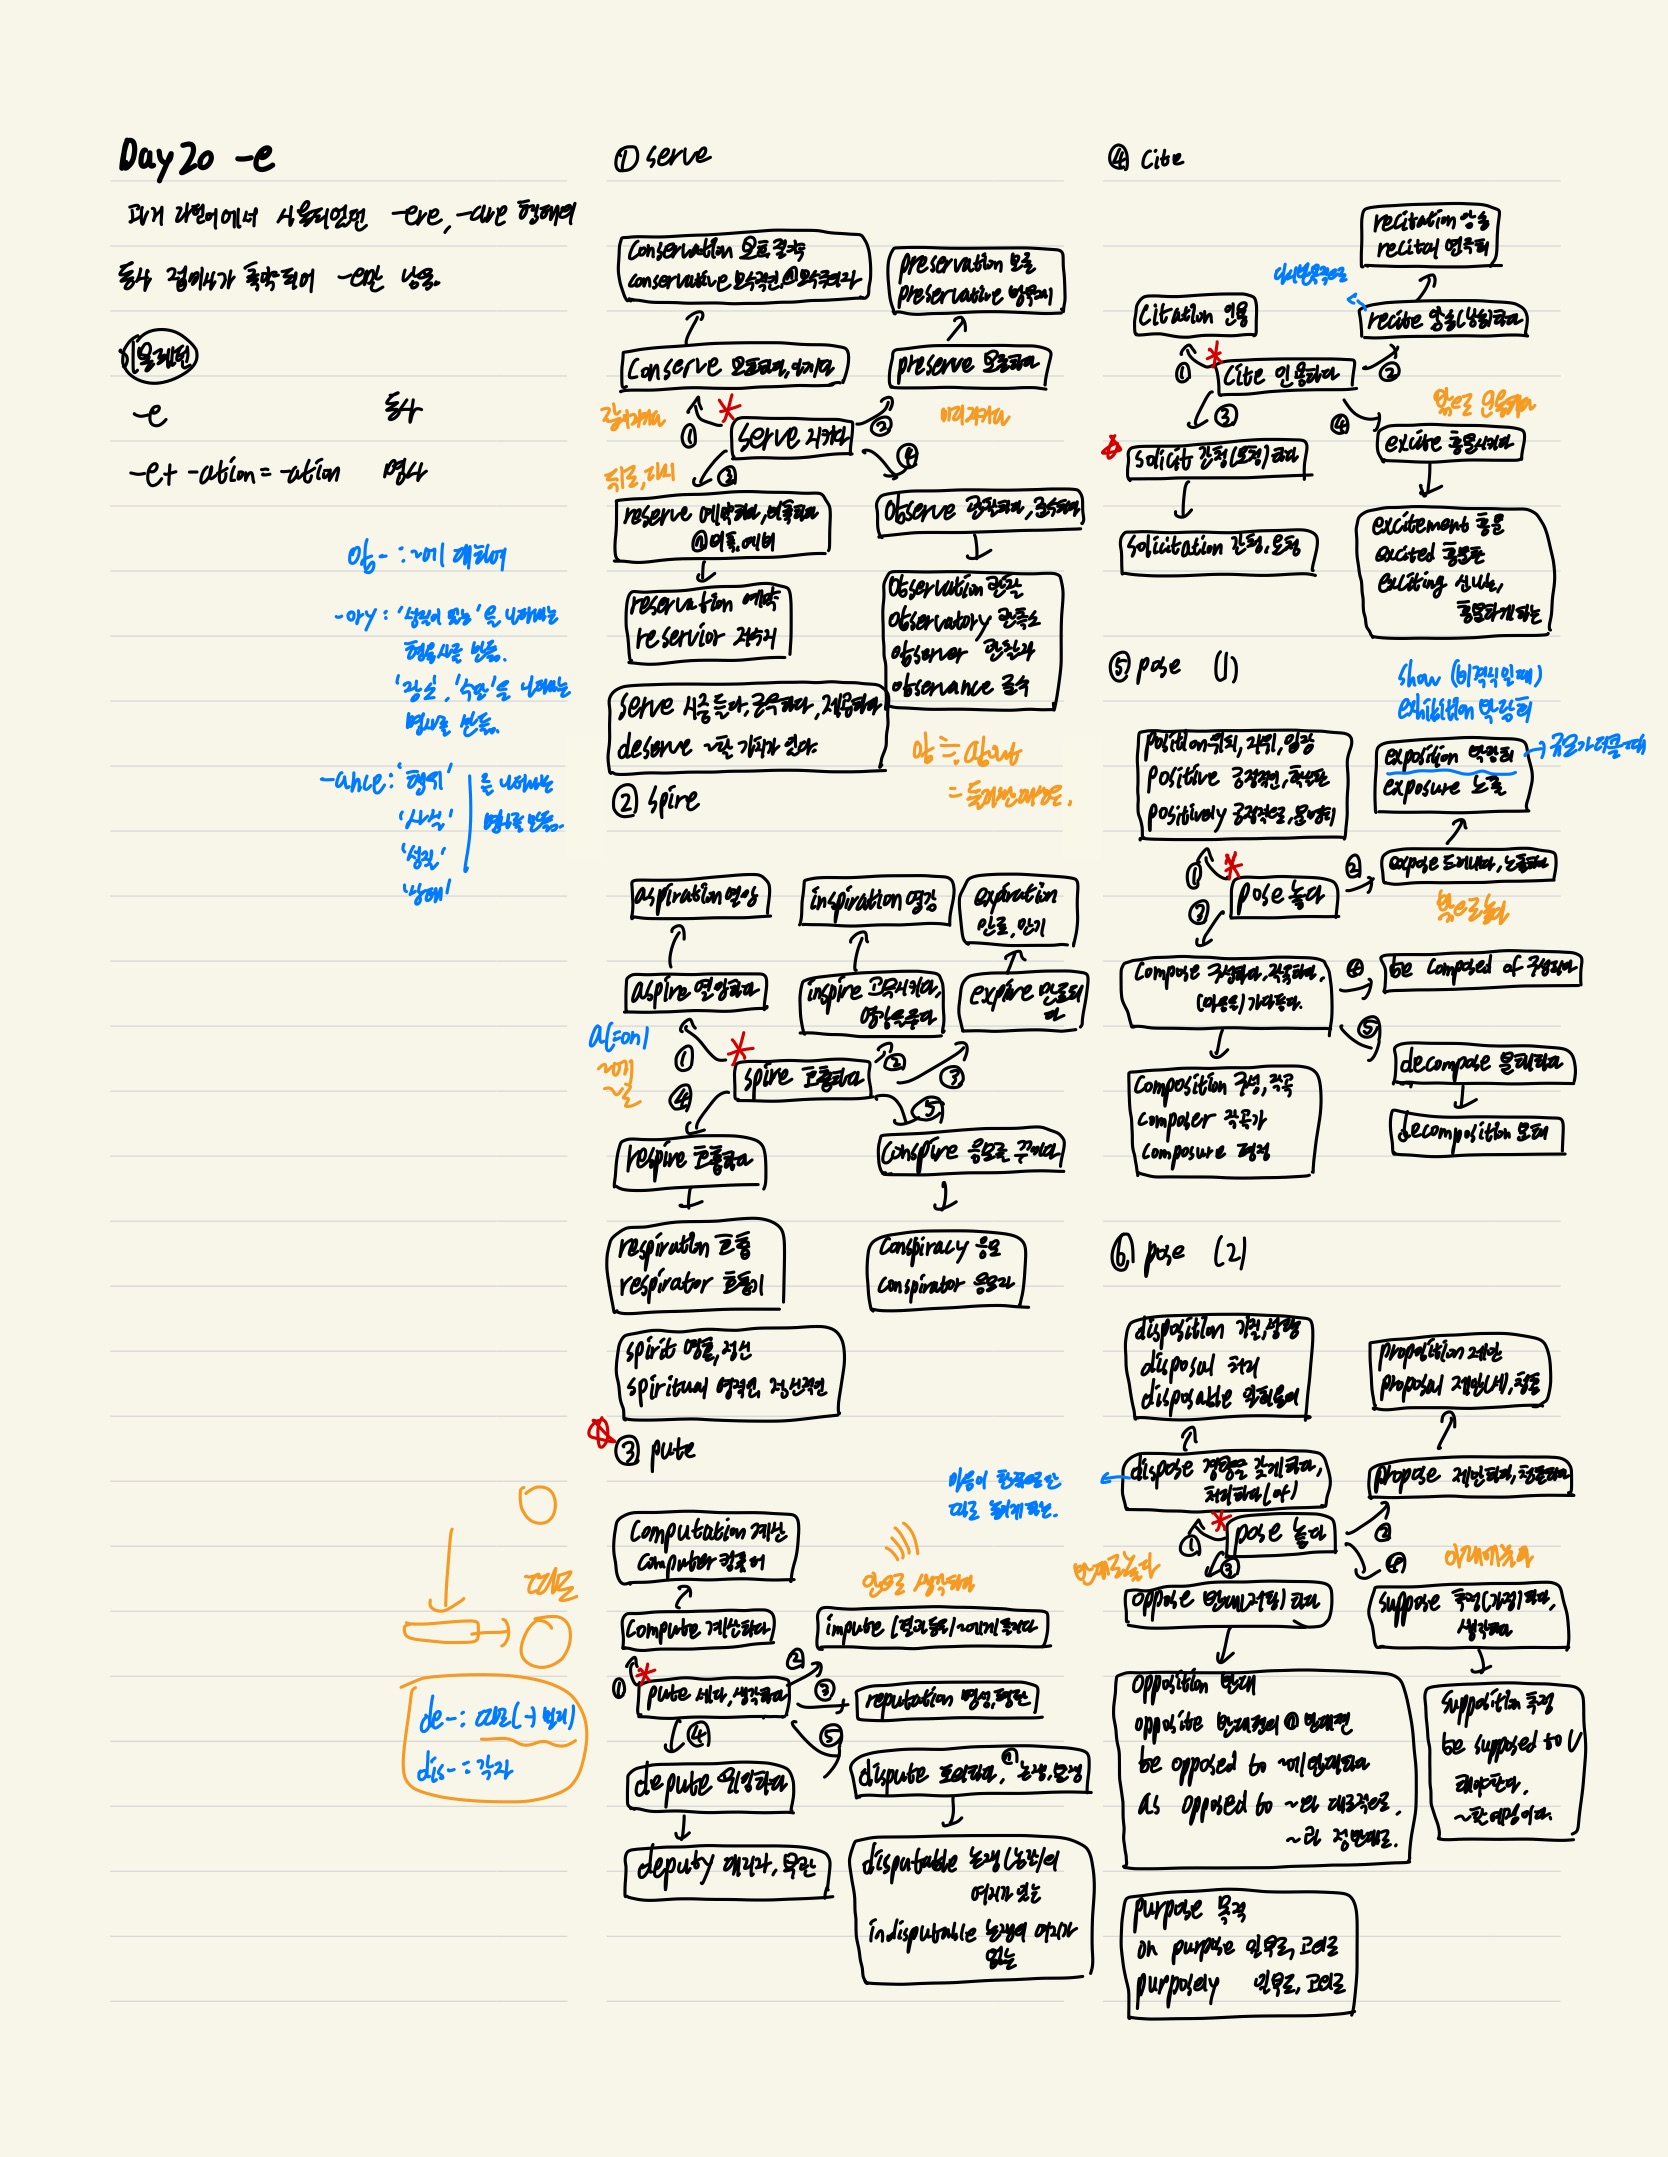 Day 20 -e
과거 라틴어에서 사용되었던 -ere, -are 형태의
동사 접미사가 축약되어 -e만 남음.
-e 동사
-e + -ation = -ation 명사
ob- : ~에 대하여
-ory : '성질이 있는'을 나타내는
형용사를 만듦.
'장소', '수단'을 나타내는
명사를 만듦.
-ance : '행위'
'사실'
'성질'
'상태'
을 나타내는
명사를 만듦.
따로
de- : 따로(→ 분리)
dis- : 각자
① serve
conservation 보호, 절약
conservative 보수적인, ⓝ보수주의자
preservation 보존
preservative 방부제
conserve 보호하다, 아끼다
preserve 보존하다
함께 지키다
미리 지키다
① serve 지키다 ②
③ ④
뒤로, 다시
reserve 예약하다, 비축하다
ⓝ비축, 예비
observe 관찰하다, 준수하다
reservation 예약
reservior 저수지
observation 관찰
observatory 관측소
observer 관찰자
observance 준수
serve 시중들다, 근무하다, 제공하다
deserve ~할 가치가 있다.
② spire
aspiration 열망
inspiration 영감
expiration
만료, 만기
aspire 열망하다
inspire 고무시키다,
영감을 주다
expire 만료되
다
a(=on)
~에
~로
① spire 호흡하다 ② ③
④ ⑤
respire 호흡하다
conspire 음모를 꾸미다
respiration 호흡
respirator 호흡기
conspiracy 음모
conspirator 음모자
spirit 영혼, 정신
spiritual 영적인, 정신적인
③ pute
computation 계산
computer 컴퓨터
안으로 생각하다
compute 계산하다
impute (결과 등을) ~에게 돌리다
① pute 세다, 생각하다 ② ③
reputation 명성, 평판
④ ⑤
depute 위임하다
dispute 토의하다, ⓝ논쟁, 분쟁
deputy 대리자, 부관
disputable 논쟁(논란)의
여지가 있는
indisputable 논쟁의 여지가
없는
④ cite
recitation 암송
recital 연주회
citation 인용
recite 암송(낭송)하다
① cite 인용하다 ②
③ ④
solicit 간청(요청)하다
excite 흥분시키다
solicitation 간청, 요청
excitement 흥분
excited 흥분한
exciting 신나는,
흥분하게 하는
⑤ pose (1)
show (비격식일 때)
exhibition 박람회
position 위치, 지위, 입장
positive 긍정적인, 확실한
positively 긍정적으로, 분명히
exposition 박람회
exposure 노출
① pose 놓다 ②
expose 드러내다, 노출하다
밖으로 놓다
③
compose 구성하다, 작곡하다,
(마음을) 가다듬다.
④ be composed of 구성되다
⑤
decompose 분해하다
composition 구성, 작곡
composer 작곡가
composure 평정
decomposition 분해
⑥ pose (2)
disposition 기질, 성향
disposal 처리
disposable 일회용의
proposition 제안
proposal 제안(서), 청혼
마음이 한쪽으로만
따로 놓이게 하는.
dispose 경향을 갖게 하다,
처리하다(of)
propose 제안하다, 청혼하다
① pose 놓다 ②
③ ④
반대로 놓다
아래에 놓다
oppose 반대(저항)하다
suppose 추정(가정)하다,
생각하다
opposition 반대
opposite 반대편의 ⓝ 반대편
be opposed to ~에 반대하다
as opposed to ~와 대조적으로,
~와 정반대로.
supposition 추정
be supposed to V
해야 한다.
~할 예정이다.
purpose 목적
on purpose 일부러, 고의로
purposely 일부러, 고의로